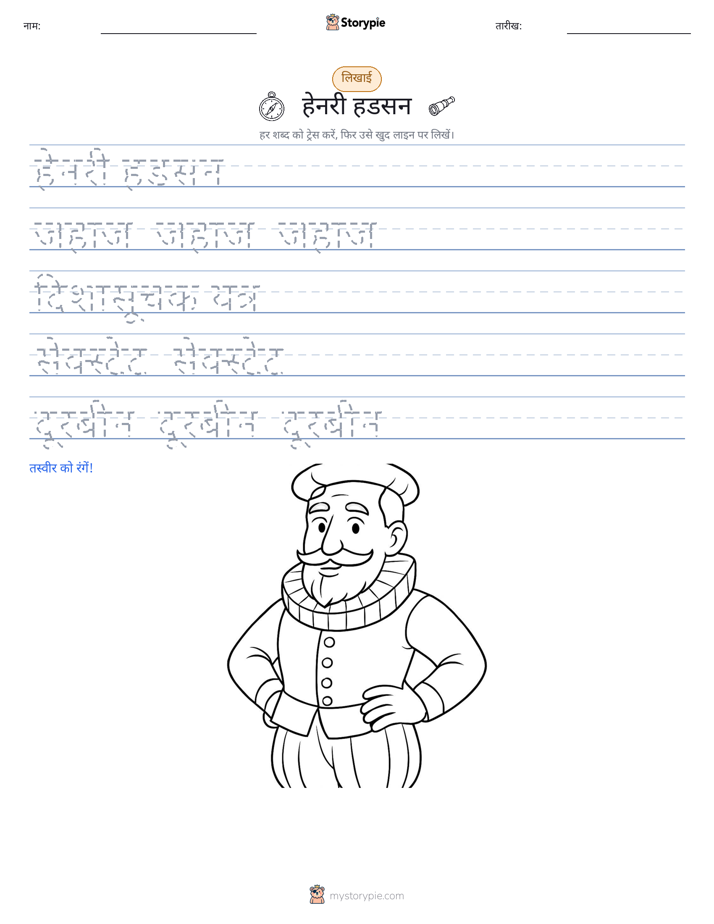 नाम:
Storypie
तारीख:
लिखाई
हेनरी हडसन
हर शब्द को ट्रेस करें, फिर उसे खुद लाइन पर लिखें।
हेनरी हडसन
जहाज जहाज जहाज
दिशासूचक यंत्र
सेक्स्टेंट सेक्स्टेंट
दूरबीन दूरबीन दूरबीन
तस्वीर को रंगें!
mystorypie.com